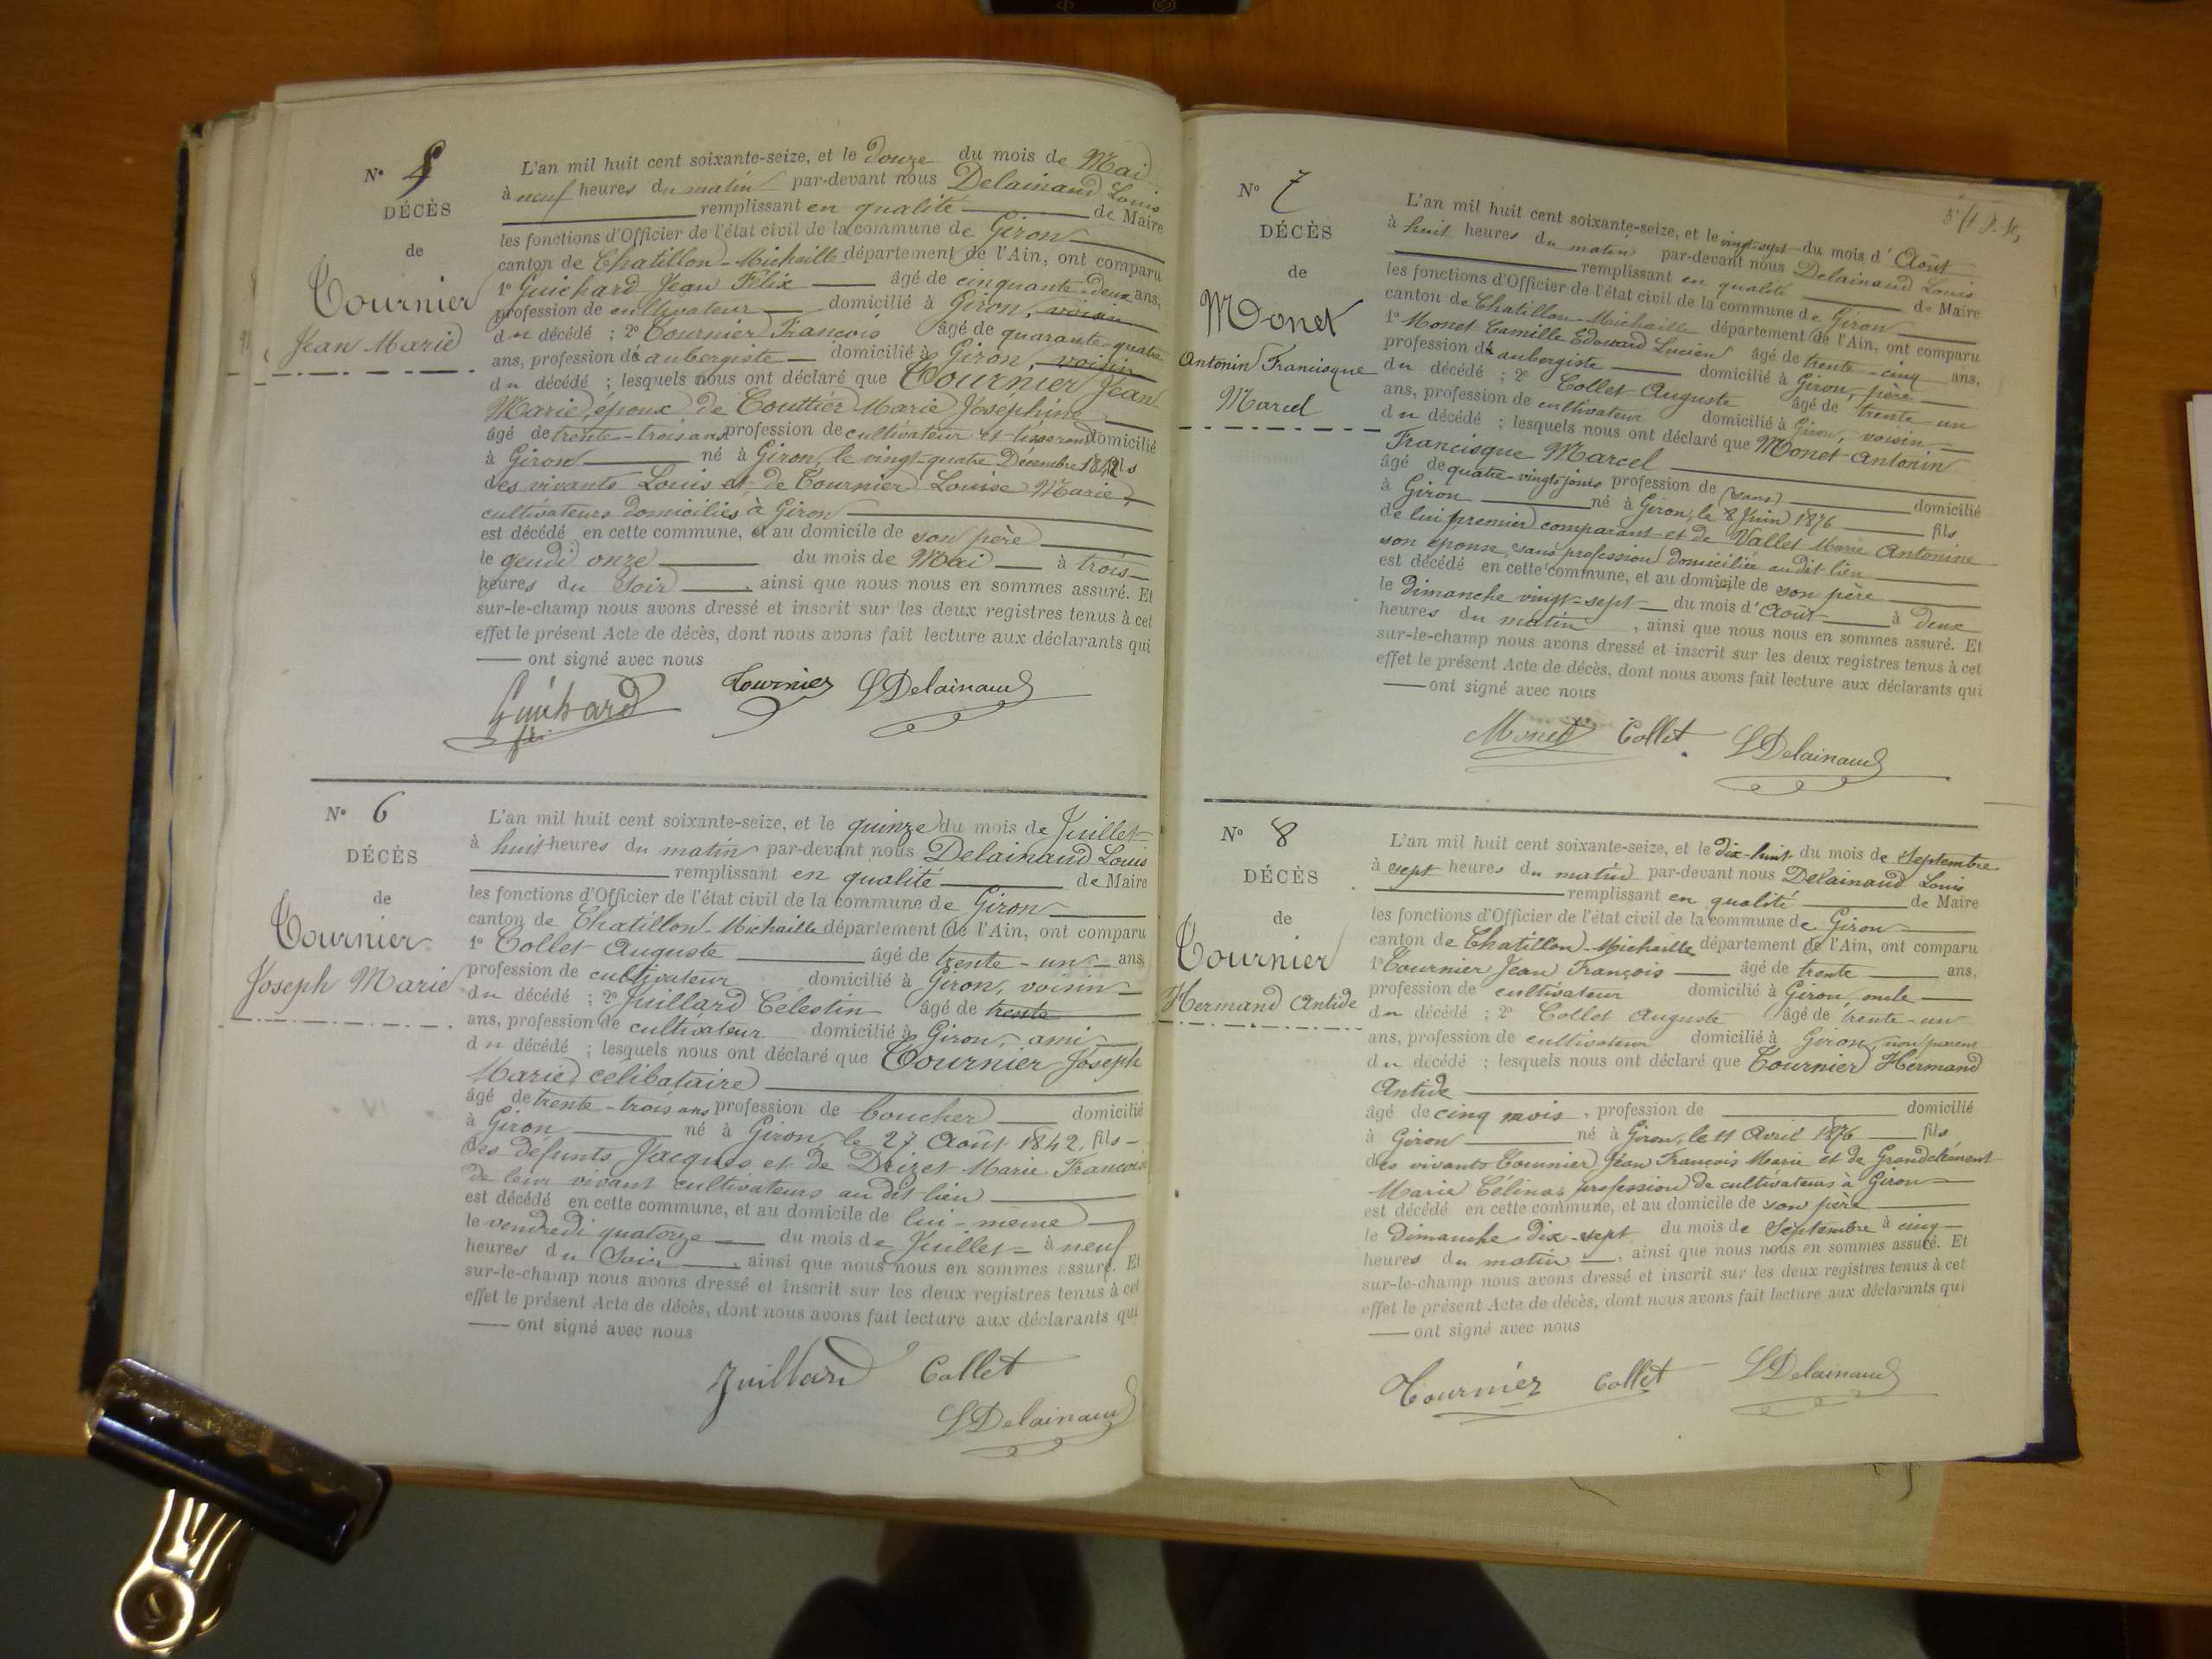 N° 5
DÉCÈS
de
Tournier
Jean Marie
L'an mil huit cent soixante-seize, et le douze du mois de Mai
à neuf heures du matin par-devant nous Delainaud Louis
remplissant en qualité de Maire
les fonctions d'Officier de l'état civil de la commune de Giron
canton de Chatillon-Michaille département de l'Ain, ont comparu
1° Guichard Jean Félix âgé de cinquante-deux ans,
profession de cultivateur domicilié à Giron, voisin
du décédé ; 2° Tournier François âgé de quarante-quatre
ans, profession de aubergiste domicilié à Giron, voisin
du décédé ; lesquels nous ont déclaré que Tournier Jean
Marie, époux de Couttier Marie Joséphine
âgé de trente-trois ans profession de cultivateur et tisserand domicilié
à Giron né à Giron, le vingt-quatre Décembre 1842 fils
des vivants Louis et de Tournier Louise Marie,
cultivateurs domiciliés à Giron
est décédé en cette commune, et au domicile de son père
le jeudi onze du mois de Mai à trois
heures du Soir, ainsi que nous nous en sommes assuré. Et
sur-le-champ nous avons dressé et inscrit sur les deux registres tenus à cet
effet le présent Acte de décès, dont nous avons fait lecture aux déclarants qui
ont signé avec nous
Guichard Tournier LDelainaud
N° 6
DÉCÈS
de
Tournier
Joseph Marie
L'an mil huit cent soixante-seize, et le quinze du mois de Juillet
à huit heures du matin par-devant nous Delainaud Louis
remplissant en qualité de Maire
les fonctions d'Officier de l'état civil de la commune de Giron
canton de Chatillon-Michaille département de l'Ain, ont comparu
1° Collet Auguste âgé de trente-un ans
profession de cultivateur domicilié à Giron, voisin
du décédé ; 2° Juillard Célestin âgé de trente
ans, profession de cultivateur domicilié à Giron, ami
du décédé ; lesquels nous ont déclaré que Tournier Joseph
Marie, celibataire
âgé de trente-trois ans profession de boucher domicilié
à Giron né à Giron le 27 Août 1842, fils
des défunts Jacques et de Drizet Marie Françoise
de leur vivant cultivateurs au dit lieu
est décédé en cette commune, et au domicile de lui-même
le vendredi quatorze du mois de Juillet à neuf
heures du Soir, ainsi que nous nous en sommes assuré. Et
sur-le-champ nous avons dressé et inscrit sur les deux registres tenus à cet
effet le présent Acte de décès, dont nous avons fait lecture aux déclarants qui
ont signé avec nous
Juillard Collet
LDelainaud
N° 7
DÉCÈS
de
Monet
Antonin Francisque
Marcel
L'an mil huit cent soixante-seize, et le vingt-sept du mois d'Août
à huit heures du matin par-devant nous Delainaud Louis
remplissant en qualité de Maire
les fonctions d'Officier de l'état civil de la commune de Giron
canton de Chatillon-Michaille département de l'Ain, ont comparu
1° Monet Camille Edouard Lucien âgé de trente-cinq ans,
profession de aubergiste domicilié à Giron, père
du décédé ; 2° Collet Auguste âgé de trente-un
ans, profession de cultivateur domicilié à Giron, voisin
du décédé ; lesquels nous ont déclaré que Monet Antonin
Francisque Marcel
âgé de quatre-vingts jours profession de (sans) domicilié
à Giron né à Giron, le 8 Juin 1876 fils
de lui premier comparant et de Vallet Marie Antonine
son épouse, sans profession domiciliée au dit lieu
est décédé en cette commune, et au domicile de son père
le Dimanche vingt-sept du mois d'Août à deux
heures du matin, ainsi que nous nous en sommes assuré. Et
sur-le-champ nous avons dressé et inscrit sur les deux registres tenus à cet
effet le présent Acte de décès, dont nous avons fait lecture aux déclarants qui
ont signé avec nous
Monet Collet LDelainaud
N° 8
DÉCÈS
de
Tournier
Hermand Antide
L'an mil huit cent soixante-seize, et le dix-huit du mois de Septembre
à sept heures du matin par-devant nous Delainaud Louis
remplissant en qualité de Maire
les fonctions d'Officier de l'état civil de la commune de Giron
canton de Chatillon-Michaille département de l'Ain, ont comparu
1° Tournier Jean François âgé de trente ans,
profession de cultivateur domicilié à Giron, oncle
du décédé ; 2° Collet Auguste âgé de trente-un
ans, profession de cultivateur domicilié à Giron, non parent
du décédé ; lesquels nous ont déclaré que Tournier Hermand
Antide
âgé de cinq mois, profession de domicilié
à Giron né à Giron, le 11 Avril 1876 fils
des vivants Tournier Jean François Marie et de Grandclément
Marie Célina, profession de cultivateurs à Giron
est décédé en cette commune, et au domicile de son père
le Dimanche dix-sept du mois de Septembre à cinq
heures du matin, ainsi que nous nous en sommes assuré. Et
sur-le-champ nous avons dressé et inscrit sur les deux registres tenus à cet
effet le présent Acte de décès, dont nous avons fait lecture aux déclarants qui
ont signé avec nous
Tournier Collet LDelainaud